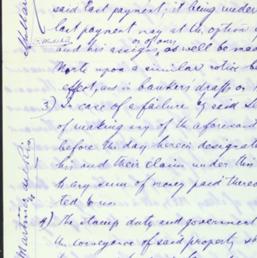 said last payment, it being under
last payment may at the option o
or of any
and his assigns as well be mad
York upon a similar notice b
effect, as in bankers drafts or
3) In case of a failure of said
of making any of the aforesaid
before the day herein designate
his and their claim under this
to any sum of money paid thereo
ted to run.
4) The stamp duty and government
the conveyance of said property sh